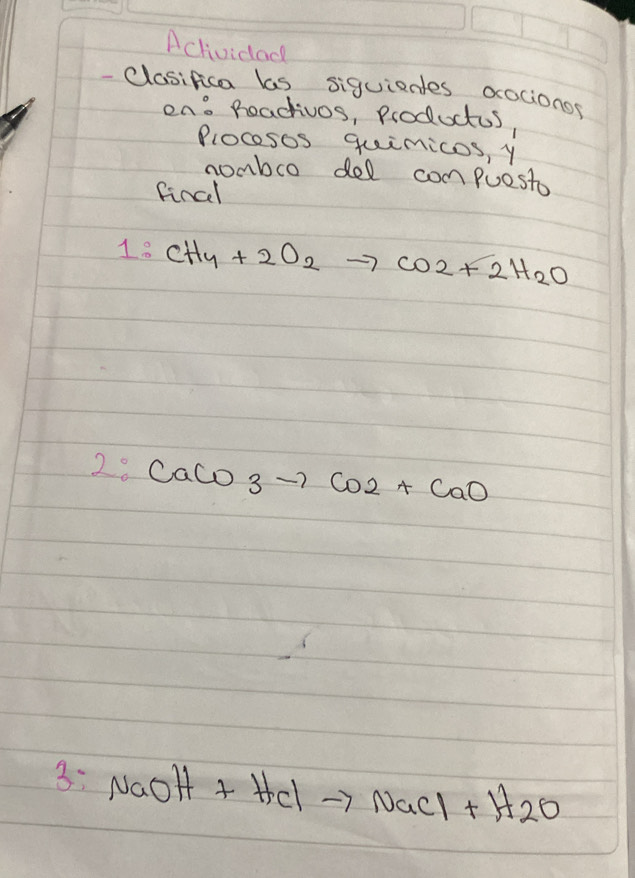 Actividad
- Clasifica las siguientes ecociones
en: Reactivos, Productos,
Procesos químicos, y
nombre del compuesto
final
1: CH4 + 2O₂ → CO2 + 2H₂O
2: CaCO3 → CO2 + CaO
3: NaOH + HCl → NaCl + H2O